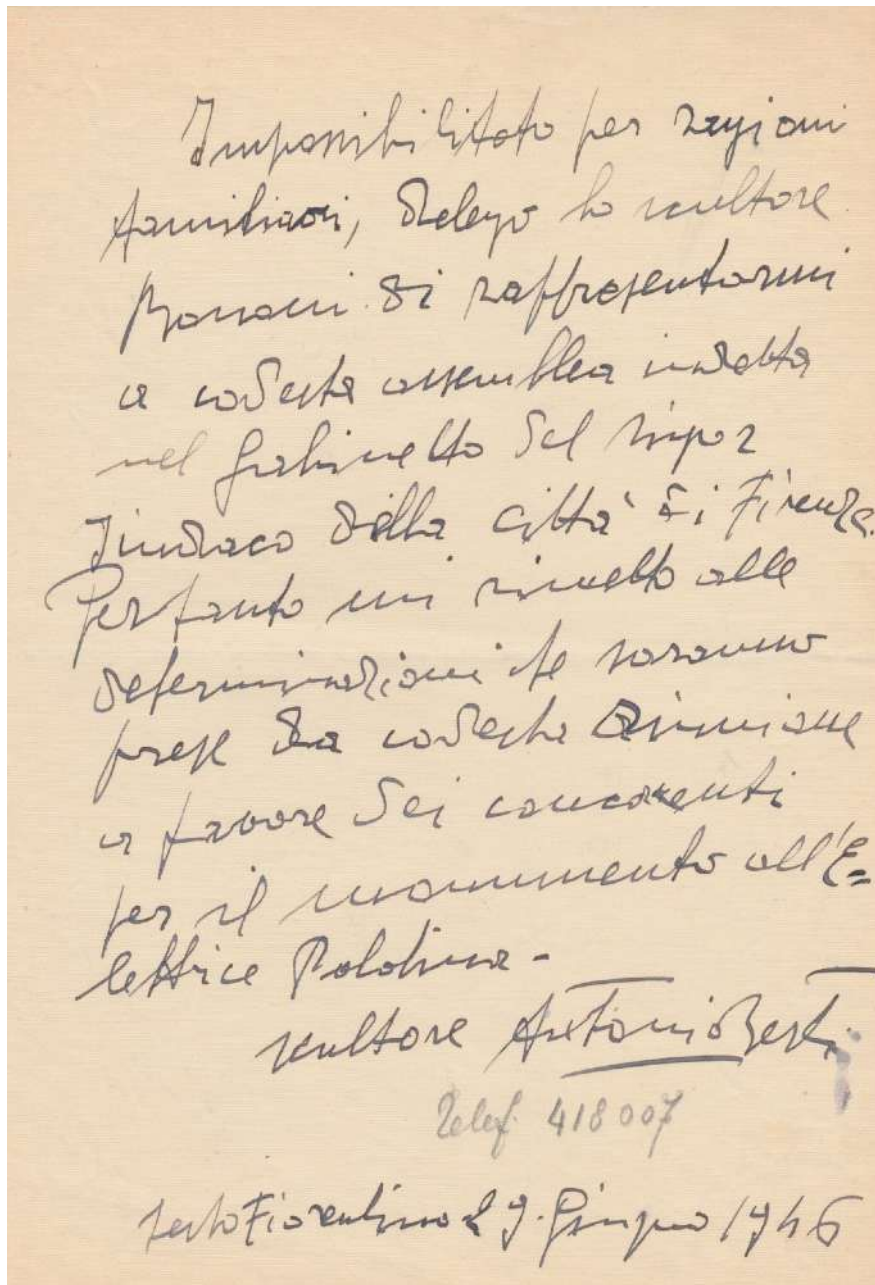 Impossibilitato per ragioni
familiari, delego lo scultore
di rappresentarmi
a codesta assemblea indetta
nel Gabinetto del Signor
Sindaco della città di Firenze.
Pertanto mi rimetto alle
determinazioni che saranno
prese da codesta riunione
a favore dei concorrenti
per il monumento all'E=
lettrice Palatina -
scultore Antonio Berti
Telef. 418007
Sesto Fiorentino 29. Giugno 1946